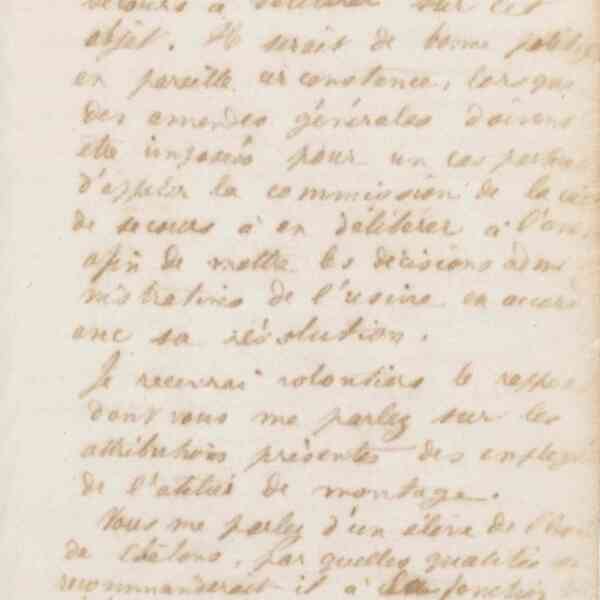 secours à délibérer sur cet
objet. Il serait de bonne politi
en pareille circonstance, lorsque
des amendes générales doivent
être imposés pour un cas
d'appeler la commission de la
de secours à en délibérer à l'
afin de mettre les décisions admi
nistratives de l'usine en accord
avec sa résolution.
Je recevrai volontiers le rapport
dont vous me parlez sur les
attributions présentes des employés
de l'atelier de montage.
Vous me parlez d'un élève de l'
de Châlons, par quelles qualités se
recommanderait il à fonctions